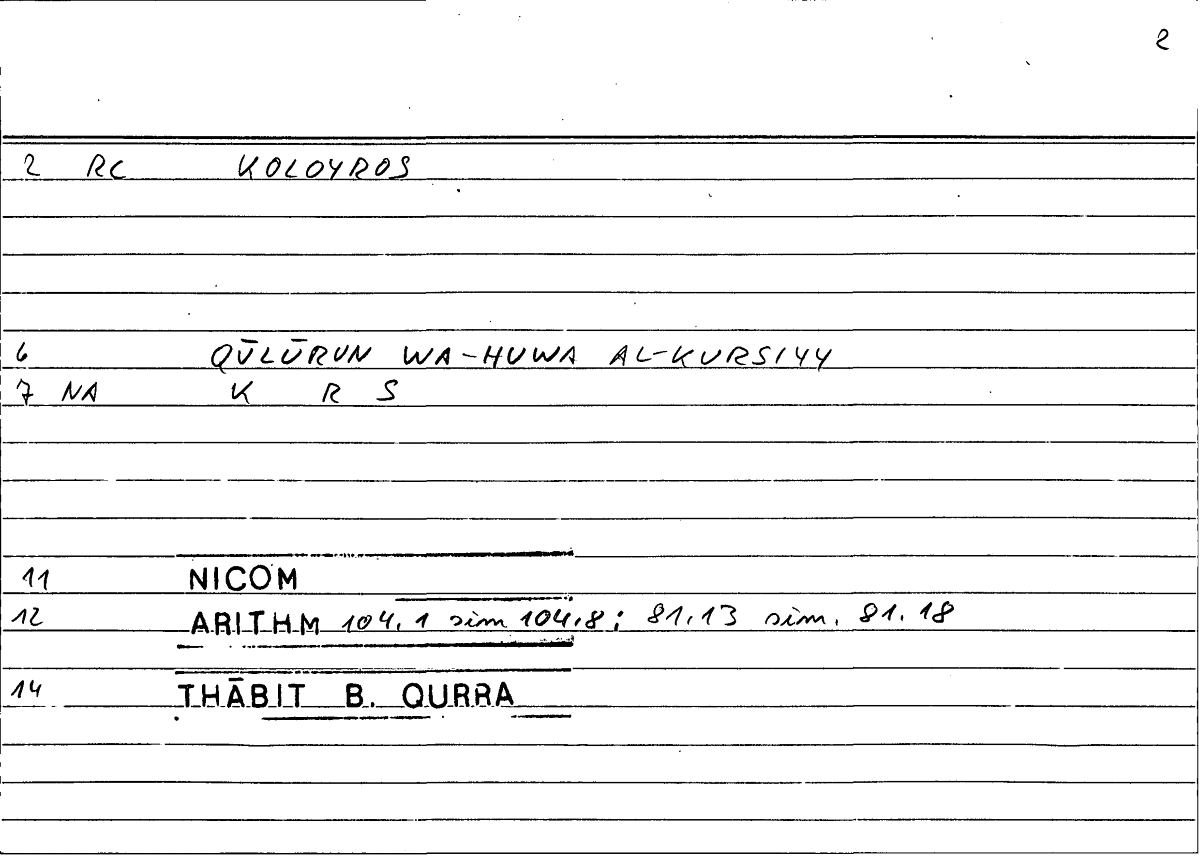 2
2 RC KOLOYROS
6 QŪLŪRUN WA-HUWA AL-KURSIYY
7 NA K R S
11 NICOM
12 ARITHM 104,1 sim 104,8; 81,13 sim. 81,18
14 THĀBIT B. QURRA